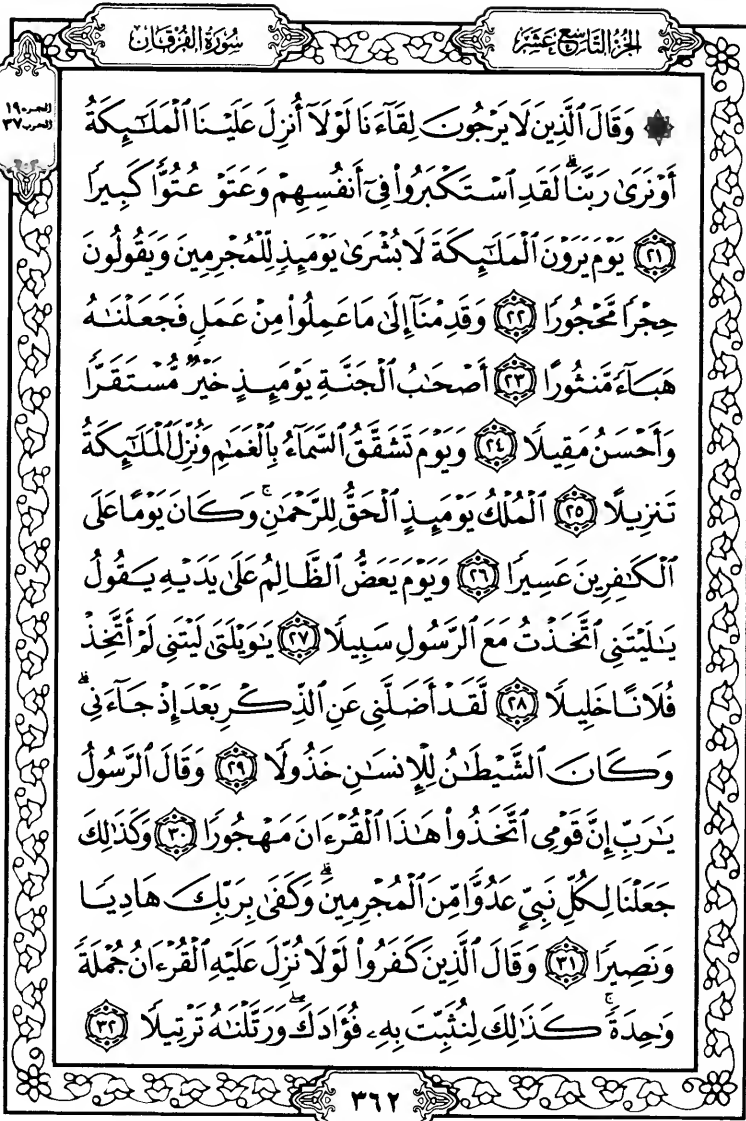 الجزء التاسع عشر
سورة الفرقان
الجزء ١٩
الحزب ٣٧
۞ وَقَالَ ٱلَّذِينَ لَا يَرْجُونَ لِقَآءَنَا لَوْلَآ أُنزِلَ عَلَيْنَا ٱلْمَلَٰٓئِكَةُ
أَوْ نَرَىٰ رَبَّنَاۗ لَقَدِ ٱسْتَكْبَرُوا۟ فِىٓ أَنفُسِهِمْ وَعَتَوْ عُتُوًّا كَبِيرًا
﴿٢١﴾ يَوْمَ يَرَوْنَ ٱلْمَلَٰٓئِكَةَ لَا بُشْرَىٰ يَوْمَئِذٍ لِّلْمُجْرِمِينَ وَيَقُولُونَ
حِجْرًا مَّحْجُورًا ﴿٢٢﴾ وَقَدِمْنَآ إِلَىٰ مَا عَمِلُوا۟ مِنْ عَمَلٍ فَجَعَلْنَٰهُ
هَبَآءً مَّنثُورًا ﴿٢٣﴾ أَصْحَٰبُ ٱلْجَنَّةِ يَوْمَئِذٍ خَيْرٌ مُّسْتَقَرًّا
وَأَحْسَنُ مَقِيلًا ﴿٢٤﴾ وَيَوْمَ تَشَقَّقُ ٱلسَّمَآءُ بِٱلْغَمَٰمِ وَنُزِّلَ ٱلْمَلَٰٓئِكَةُ
تَنزِيلًا ﴿٢٥﴾ ٱلْمُلْكُ يَوْمَئِذٍ ٱلْحَقُّ لِلرَّحْمَٰنِۚ وَكَانَ يَوْمًا عَلَى
ٱلْكَٰفِرِينَ عَسِيرًا ﴿٢٦﴾ وَيَوْمَ يَعَضُّ ٱلظَّالِمُ عَلَىٰ يَدَيْهِ يَقُولُ
يَٰلَيْتَنِى ٱتَّخَذْتُ مَعَ ٱلرَّسُولِ سَبِيلًا ﴿٢٧﴾ يَٰوَيْلَتَىٰ لَيْتَنِى لَمْ أَتَّخِذْ
فُلَانًا خَلِيلًا ﴿٢٨﴾ لَّقَدْ أَضَلَّنِى عَنِ ٱلذِّكْرِ بَعْدَ إِذْ جَآءَنِىۗ
وَكَانَ ٱلشَّيْطَٰنُ لِلْإِنسَٰنِ خَذُولًا ﴿٢٩﴾ وَقَالَ ٱلرَّسُولُ
يَٰرَبِّ إِنَّ قَوْمِى ٱتَّخَذُوا۟ هَٰذَا ٱلْقُرْءَانَ مَهْجُورًا ﴿٣٠﴾ وَكَذَٰلِكَ
جَعَلْنَا لِكُلِّ نَبِىٍّ عَدُوًّا مِّنَ ٱلْمُجْرِمِينَۗ وَكَفَىٰ بِرَبِّكَ هَادِيًا
وَنَصِيرًا ﴿٣١﴾ وَقَالَ ٱلَّذِينَ كَفَرُوا۟ لَوْلَا نُزِّلَ عَلَيْهِ ٱلْقُرْءَانُ جُمْلَةً
وَٰحِدَةًۚ كَذَٰلِكَ لِنُثَبِّتَ بِهِۦ فُؤَادَكَۖ وَرَتَّلْنَٰهُ تَرْتِيلًا ﴿٣٢﴾
٣٦٢